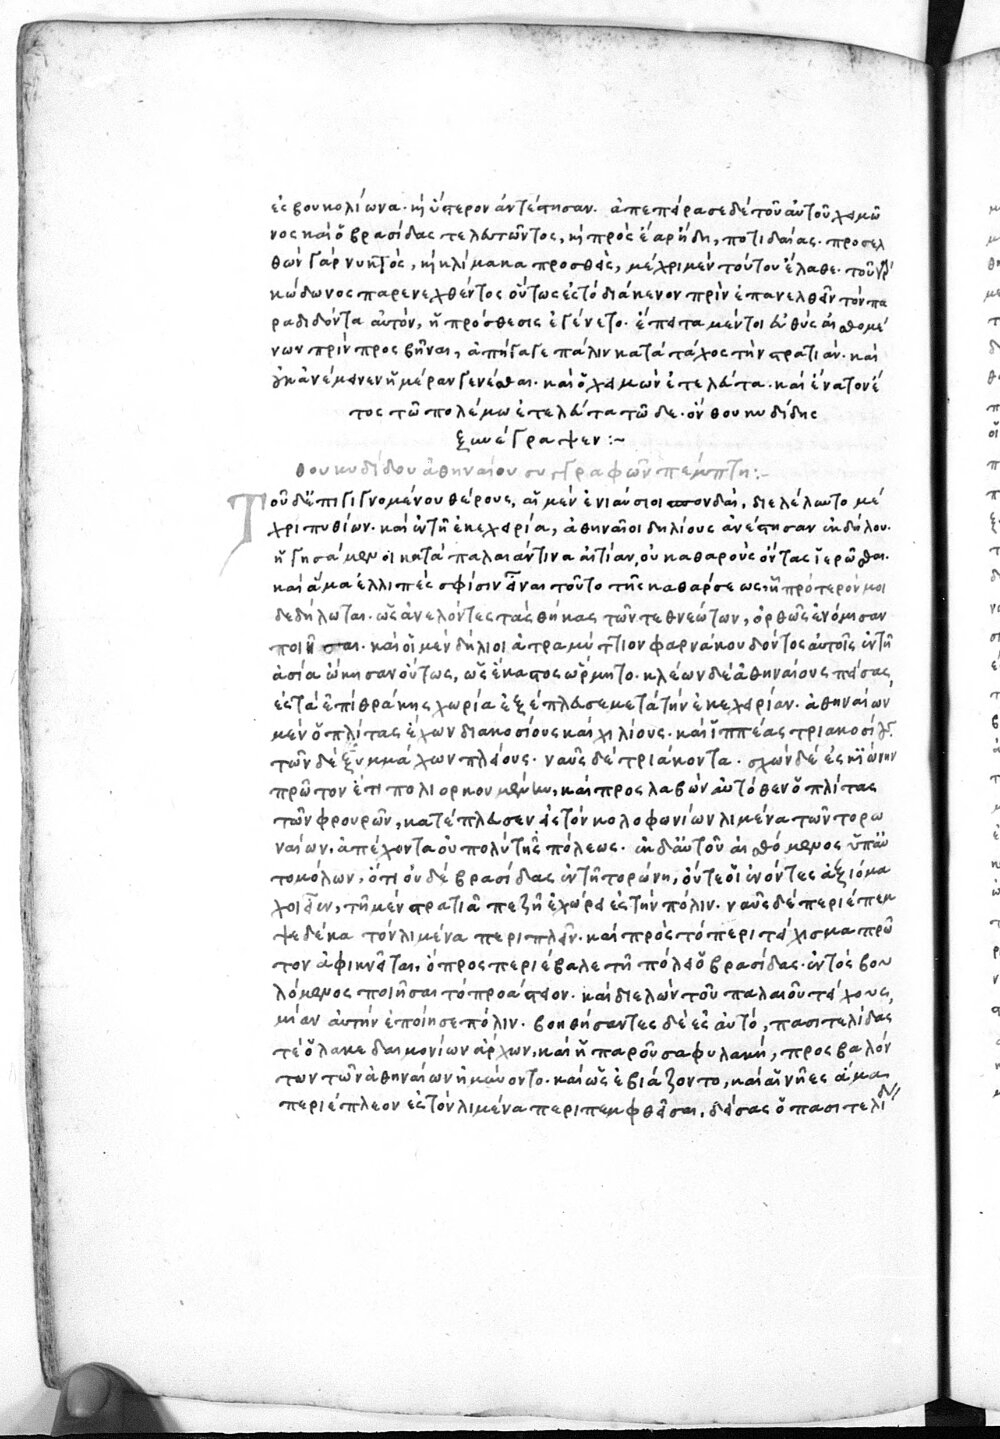 ἐς βουκολίωνα· καὶ ὕστερον ἀντέστησαν. ἀπεπείρασε δὲ τοῦ αὐτοῦ χειμῶ
νος καὶ ὁ βρασίδας τελευτῶντος, καὶ πρὸς ἔαρ ἤδη, ποτιδαίας· προσελ
θὼν γὰρ νυκτὸς, καὶ κλίμακα προσθεὶς, μέχρι μὲν τούτου ἔλαθε· τοῦ γὰρ
κώδωνος παρενεχθέντος οὕτως ἐς τὸ διάκενον πρὶν ἐπανελθεῖν τὸν πα
ραδιδόντα αὐτὸν, ἡ πρόσθεσις ἐγένετο· ἔπειτα μέντοι εὐθὺς αἰσθομέ
νων πρὶν προσβῆναι, ἀπήγαγε πάλιν κατὰ τάχος τὴν στρατιάν· καὶ
οὐκ ἀνέμεινεν ἡμέραν γενέσθαι· καὶ ὁ χειμὼν ἐτελεύτα· καὶ ἔνατον ἔ
τος τῶ πολέμω ἐτελεύτα τῶδε· ὃν θουκυδίδης
ξυνέγραψεν:~
θουκυδίδου ἀθηναίου συγγραφῶν πέμπτη:~
Τοῦ δ' ἐπιγιγνομένου θέρους, αἱ μὲν ἐνιαύσιοι σπονδαὶ, διελέλυντο μέ
χρι πυθίων· καὶ ἐν τῆ ἐκεχειρία, ἀθηναῖοι δηλίους ἀνέστησαν ἐκ δήλου·
ἡγησάμενοι κατὰ παλαιάν τινα αἰτίαν, οὐ καθαροὺς ὄντας ἱερῶσθαι·
καὶ ἅμα ἐλλιπὲς σφίσιν εἶναι τοῦτο τῆς καθάρσεως· ἧ πρότερόν μοι
δεδήλωται· ὡς ἀνελόντες τὰς θήκας τῶν τεθνεώτων, ὀρθῶς ἐνόμισαν
ποιῆσαι· καὶ οἱ μὲν δήλιοι ἀτραμύττιον φαρνάκου δόντος αὐτοῖς ἐν τῆ
ἀσία ὤκησαν οὕτως, ὡς ἕκαστος ὥρμητο· κλέων δὲ ἀθηναίους πείσας
ἐς τὰ ἐπὶ θράκης χωρία ἐξέπλευσε μετὰ τὴν ἐκεχειρίαν· ἀθηναίων
μὲν ὁπλίτας ἔχων διακοσίους καὶ χιλίους· καὶ ἱππέας τριακοσίους
τῶν δὲ ξυμμάχων πλείους· ναῦς δὲ τριάκοντα· σχὼν δὲ ἐς σκιώνην
πρῶτον ἔτι πολιορκουμένην, καὶ προσλαβὼν αὐτόθεν ὁπλίτας
τῶν φρουρῶν, κατέπλευσεν ἐς τὸν κολοφωνίων λιμένα τῶν τορω
ναίων· ἀπέχοντα οὐ πολὺ τῆς πόλεως· ἐκ δ' αὐτοῦ αἰσθόμενος ὑπ' αὐ
τομόλων, ὅτι οὐδὲ βρασίδας ἐν τῆ τορώνη, οὔτε οἱ ἐνόντες ἀξιόμα
χοι εἶεν, τῆ μὲν στρατιᾶ πεζῆ ἐχώρει ἐς τὴν πόλιν· ναῦς δὲ περιέπεμ
ψε δέκα τὸν λιμένα περιπλεῖν· καὶ πρὸς τὸ περιτείχισμα πρῶ
τον ἀφικνεῖται, ὃ προσπεριέβαλε τῆ πόλει ὁ βρασίδας· ἐντὸς βου
λόμενος ποιῆσαι τὸ προάστειον· καὶ διελὼν τοῦ παλαιοῦ τείχους,
μίαν αὐτὴν ἐποίησε πόλιν· βοηθήσαντες δὲ ἐς αὐτὸ, πασιτελίδας
τὲ ὁ λακεδαιμονίων ἄρχων, καὶ ἡ παροῦσα φυλακὴ, προσβαλόν
των τῶν ἀθηναίων ἠμύνοντο· καὶ ὡς ἐβιάζοντο, καὶ αἱ νῆες ἅμα
περιέπλεον ἐς τὸν λιμένα περιπεμφθεῖσαι, δείσας ὁ πασιτελίδας